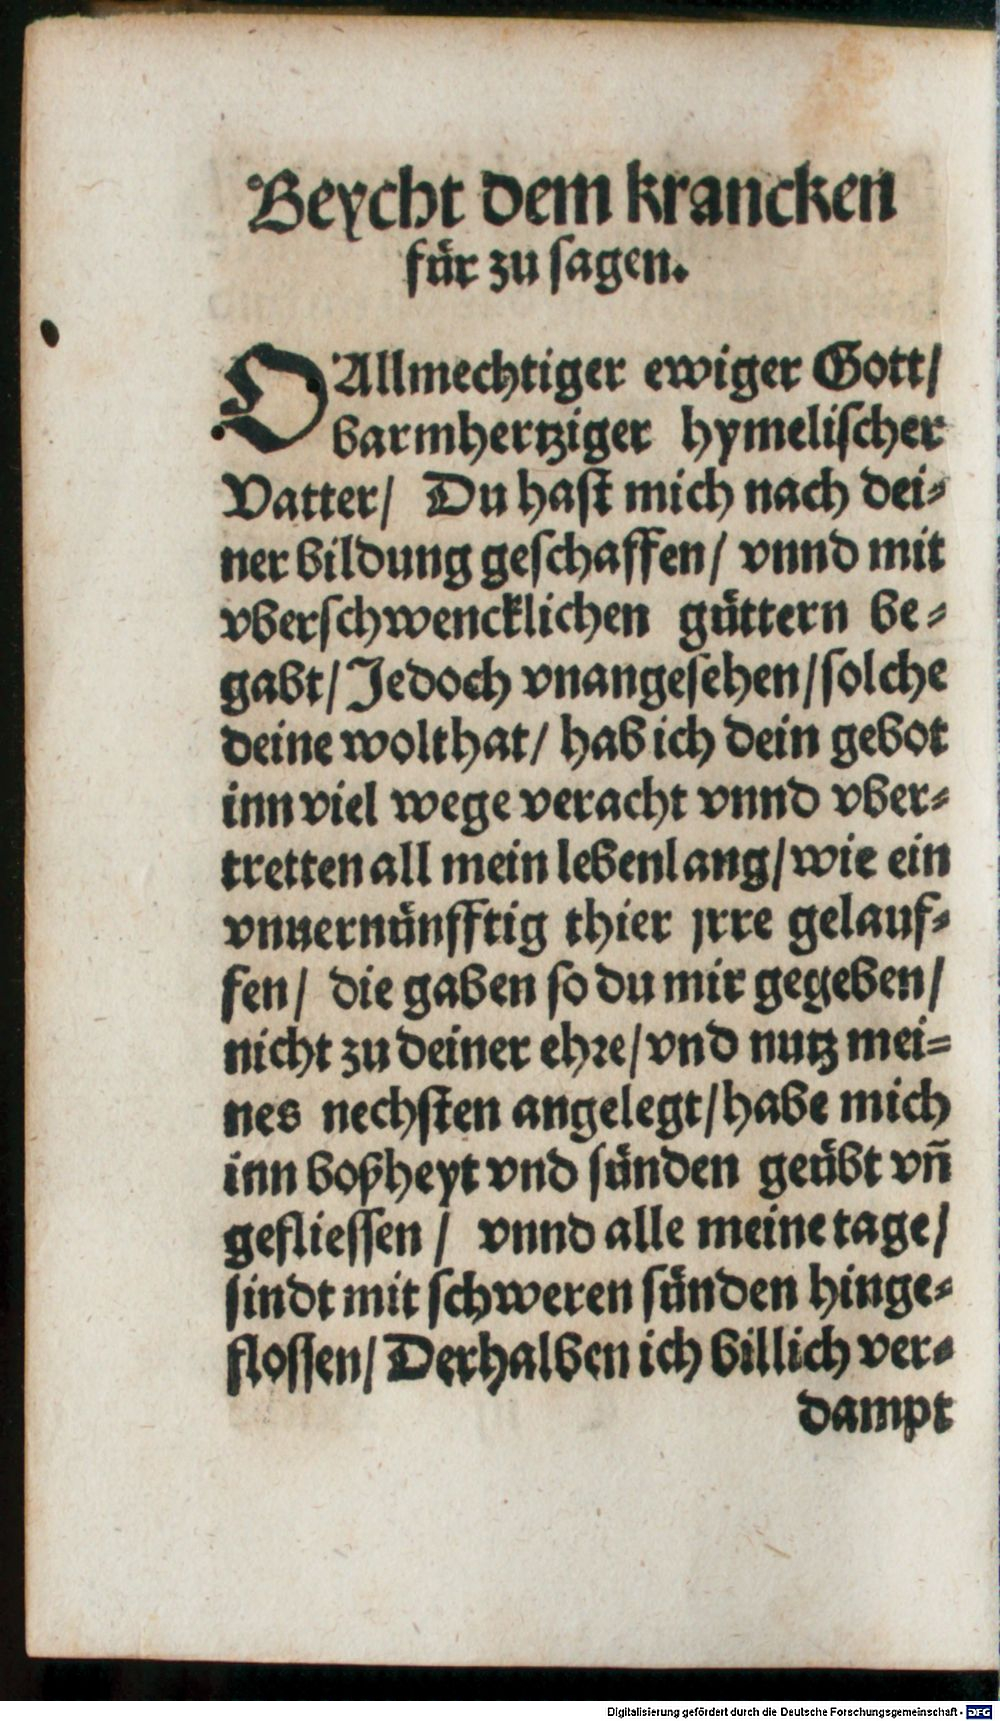 Beycht dem krancken
für zu sagen.
O Allmechtiger ewiger Gott/
barmhertziger hymelischer
Vatter/ Du hast mich nach dei-
ner bildung geschaffen/ vnnd mit
vberschwencklichen güttern be-
gabt/ Jedoch vnangesehen/ solche
deine wolthat/ hab ich dein gebot
inn viel wege veracht vnnd vber-
tretten all mein lebenlang/ wie ein
vnuernünfftig thier jrre gelauf-
fen/ die gaben so du mir gegeben/
nicht zu deiner ehre/ vnd nutz mei-
nes nechsten angelegt/ habe mich
inn boßheyt vnd sünden geübt vñ
gefliessen/ vnnd alle meine tage/
sindt mit schweren sünden hinge-
flossen/ Derhalben ich billich ver-
dampt
Digitalisierung gefördert durch die Deutsche Forschungsgemeinschaft - DFG